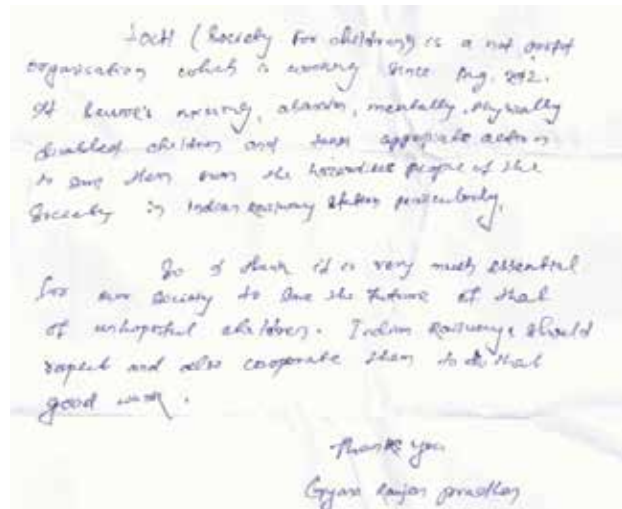 SoCH (Society for children) is a not profit
organisation which is working since Aug. 2012.
It rescue's missing, abandon, mentally, physically
disabled children and appropriate action
to save them from the people of the
Society in Indian Railway Station particularly.
So I think it is very much essential
for our society to save the future of that
of unhopeful children. Indian Railways should
and also cooperate them to do that
good work.
Thank you
Gyana Ranjan pradhan